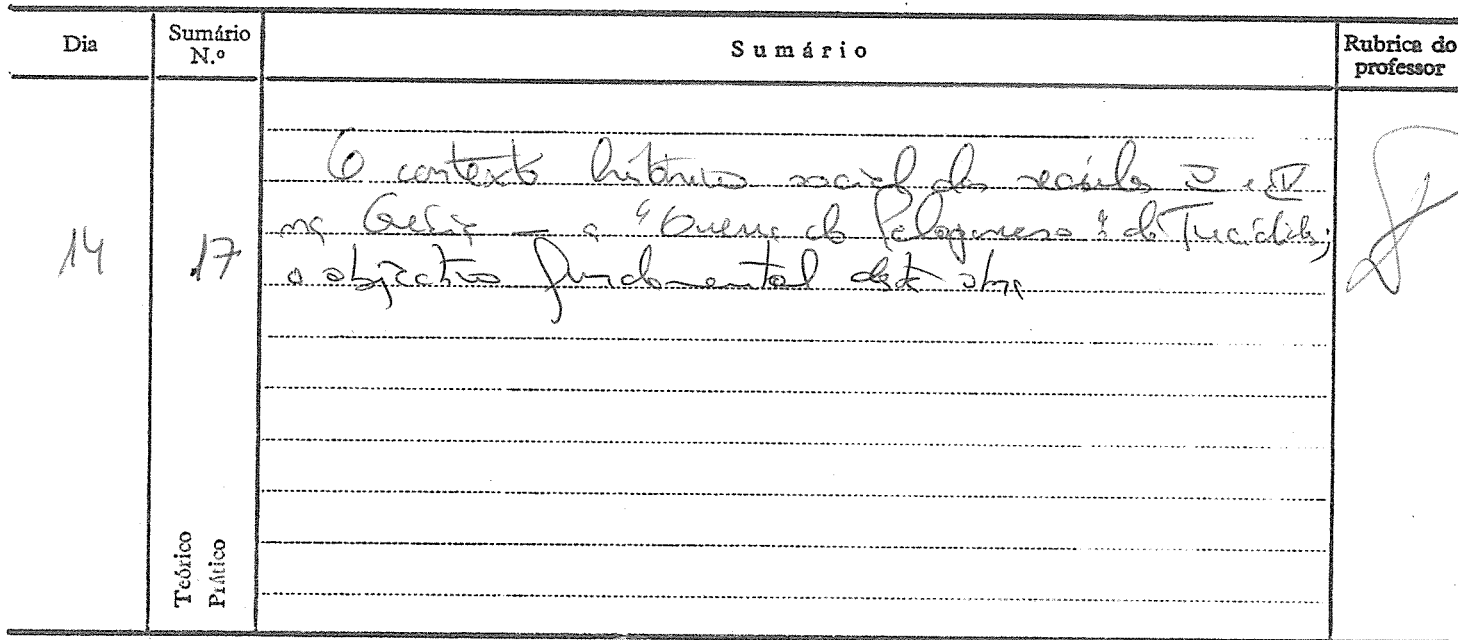 Dia
Sumário N.º
Sumário
Rubrica do professor
14
17
O contexto histórico social dos séculos V e IV
na Grécia — a "Guerra do Peloponeso" de Tucídides;
o objectivo fundamental desta obra
Teórico
Prático